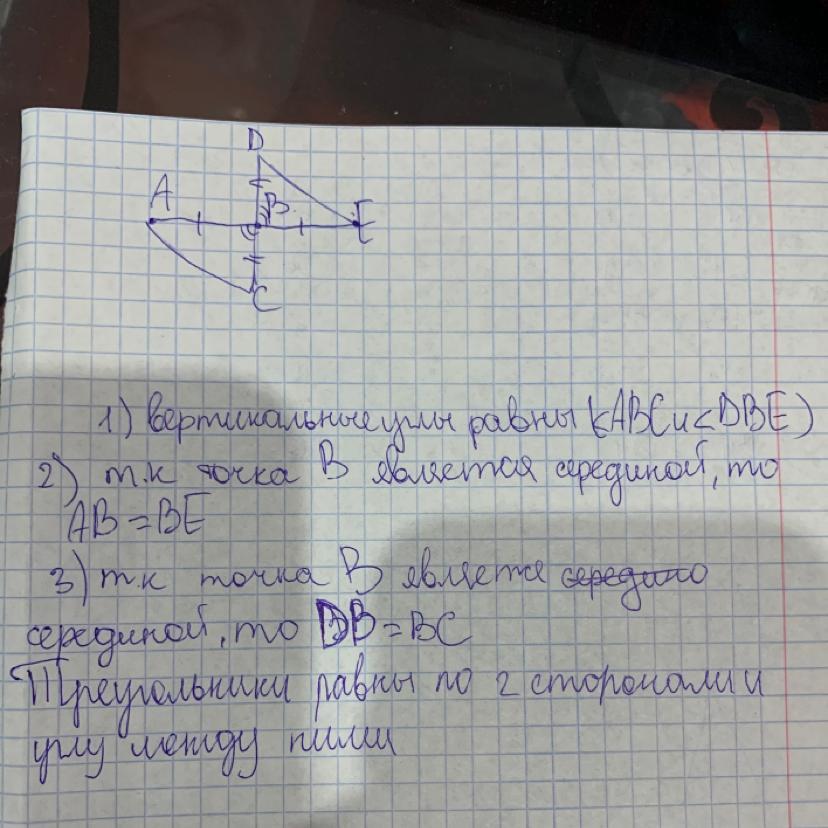 D
A
B
E
C
1) вертикальные углы равны (<ABC и <DBE)
2) т.к точка B является серединой, то
AB = BE
3) т.к точка B является середино
серединой, то DB = BC
Треугольники равны по 2 сторонам и
углу между ними